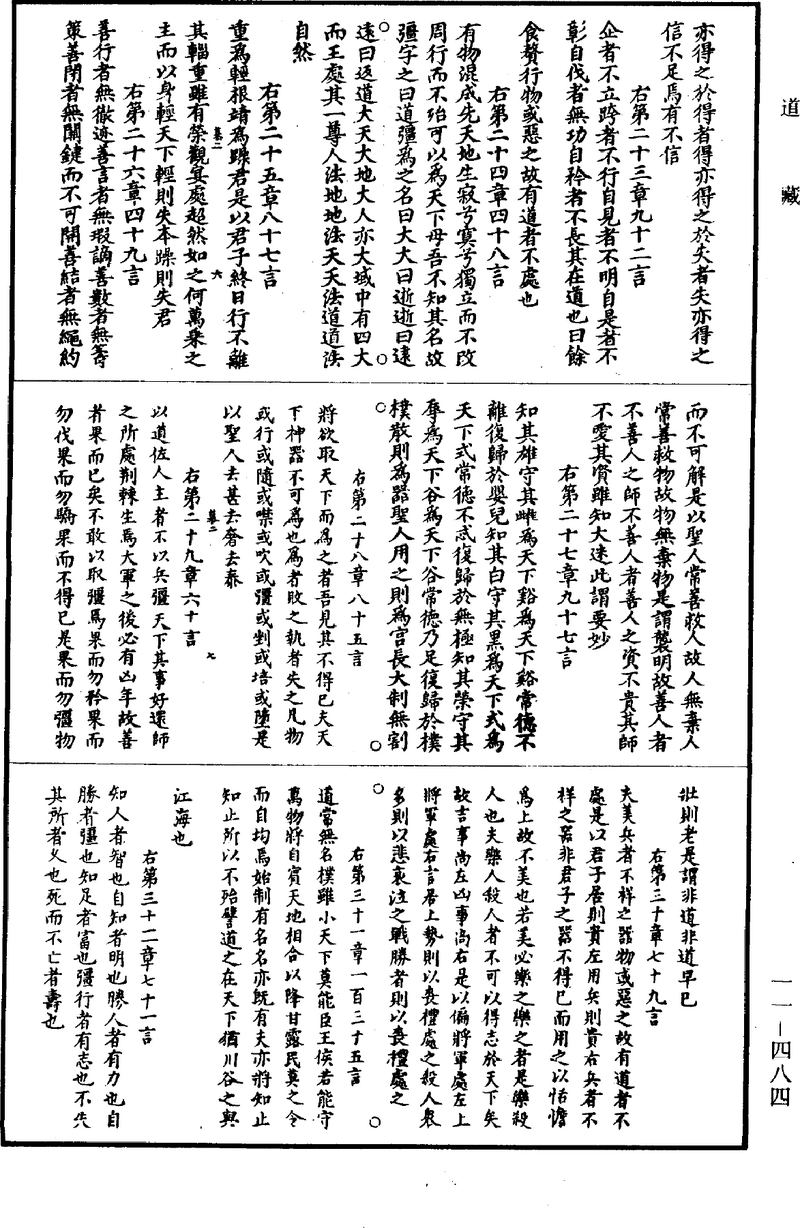 道藏
亦得之於得者得亦得之於失者失亦得之
信不足焉有不信
右第二十三章九十二言
企者不立跨者不行自見者不明自是者不
彰自伐者無功自矜者不長其在道也曰餘
食贅行物或惡之故有道者不處也
右第二十四章四十八言
有物混成先天地生寂兮寞兮獨立而不改
周行而不殆可以為天下母吾不知其名故
彊字之曰道彊為之名曰大大曰逝逝曰遠
遠曰返道大天大地大人亦大域中有四大
而王處其一尊人法地地法天天法道道法
自然
右第二十五章八十七言
重為輕根靖為躁君是以君子終日行不離
其輜重雖有榮觀宴處超然如之何萬乘之
主而以身輕天下輕則失本躁則失君
右第二十六章四十九言
善行者無徹迹善言者無瑕謫善數者無籌
策善閉者無關鍵而不可開善結者無繩約
而不可解是以聖人常善救人故人無棄人
常善救物故物無棄物是謂襲明故善人者
不善人之師不善人者善人之資不貴其師
不愛其資雖知大迷此謂要妙
右第二十七章九十七言
知其雄守其雌為天下谿為天下谿常德不
離復歸於嬰兒知其白守其黑為天下式為
天下式常德不忒復歸於無極知其榮守其
辱為天下谷為天下谷常德乃足復歸於樸
樸散則為器聖人用之則為官長大制無割
右第二十八章八十五言
將欲取天下而為之者吾見其不得已夫天
下神器不可為也為者敗之執者失之凡物
或行或隨或噤或吹或彊或剉或培或墮是
以聖人去甚去奢去泰
右第二十九章六十言
以道佐人主者不以兵彊天下其事好還師
之所處荆棘生焉大軍之後必有凶年故善
者果而已矣不敢以取彊焉果而勿矜果而
勿伐果而勿驕果而不得已是果而勿彊物
壯則老是謂非道非道早已
右第三十章七十九言
夫美兵者不祥之器物或惡之故有道者不
處是以君子居則貴左用兵則貴右兵者不
祥之器非君子之器不得已而用之以恬憺
為上故不美也若美必樂之樂之者是樂殺
人也夫樂人殺人者不可以得志於天下矣
故吉事尚左凶事尚右是以偏將軍處左上
將軍處右言居上勢則以喪禮處之殺人衆
多則以悲哀泣之戰勝者則以喪禮處之
右第三十一章一百三十五言
道常無名樸雖小天下莫能臣王侯若能守
萬物將自賓天地相合以降甘露民莫之令
而自均焉始制有名名亦旣有夫亦將知止
知止所以不殆譬道之在天下猶川谷之與
江海也
右第三十二章七十一言
知人者智也自知者明也勝人者有力也自
勝者彊也知足者富也彊行者有志也不失
其所者久也死而不亡者壽也
一一—四八四